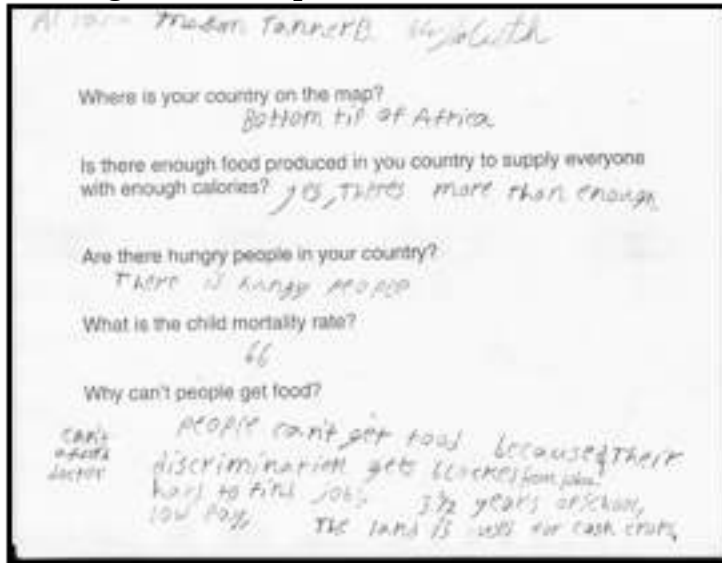 Mason Tanner B.
Where is your country on the map?
Bottom tip of Africa
Is there enough food produced in you country to supply everyone
with enough calories? yes, Theres more than enough
Are there hungry people in your country?
There is hungy people
What is the child mortality rate?
66
Why can't people get food?
people can't get food because Their
can't afford doctor
discrimination gets blackes from jobs.
hard to find jobs, 3½ years of school,
low Pay, The land is used for cash crops,